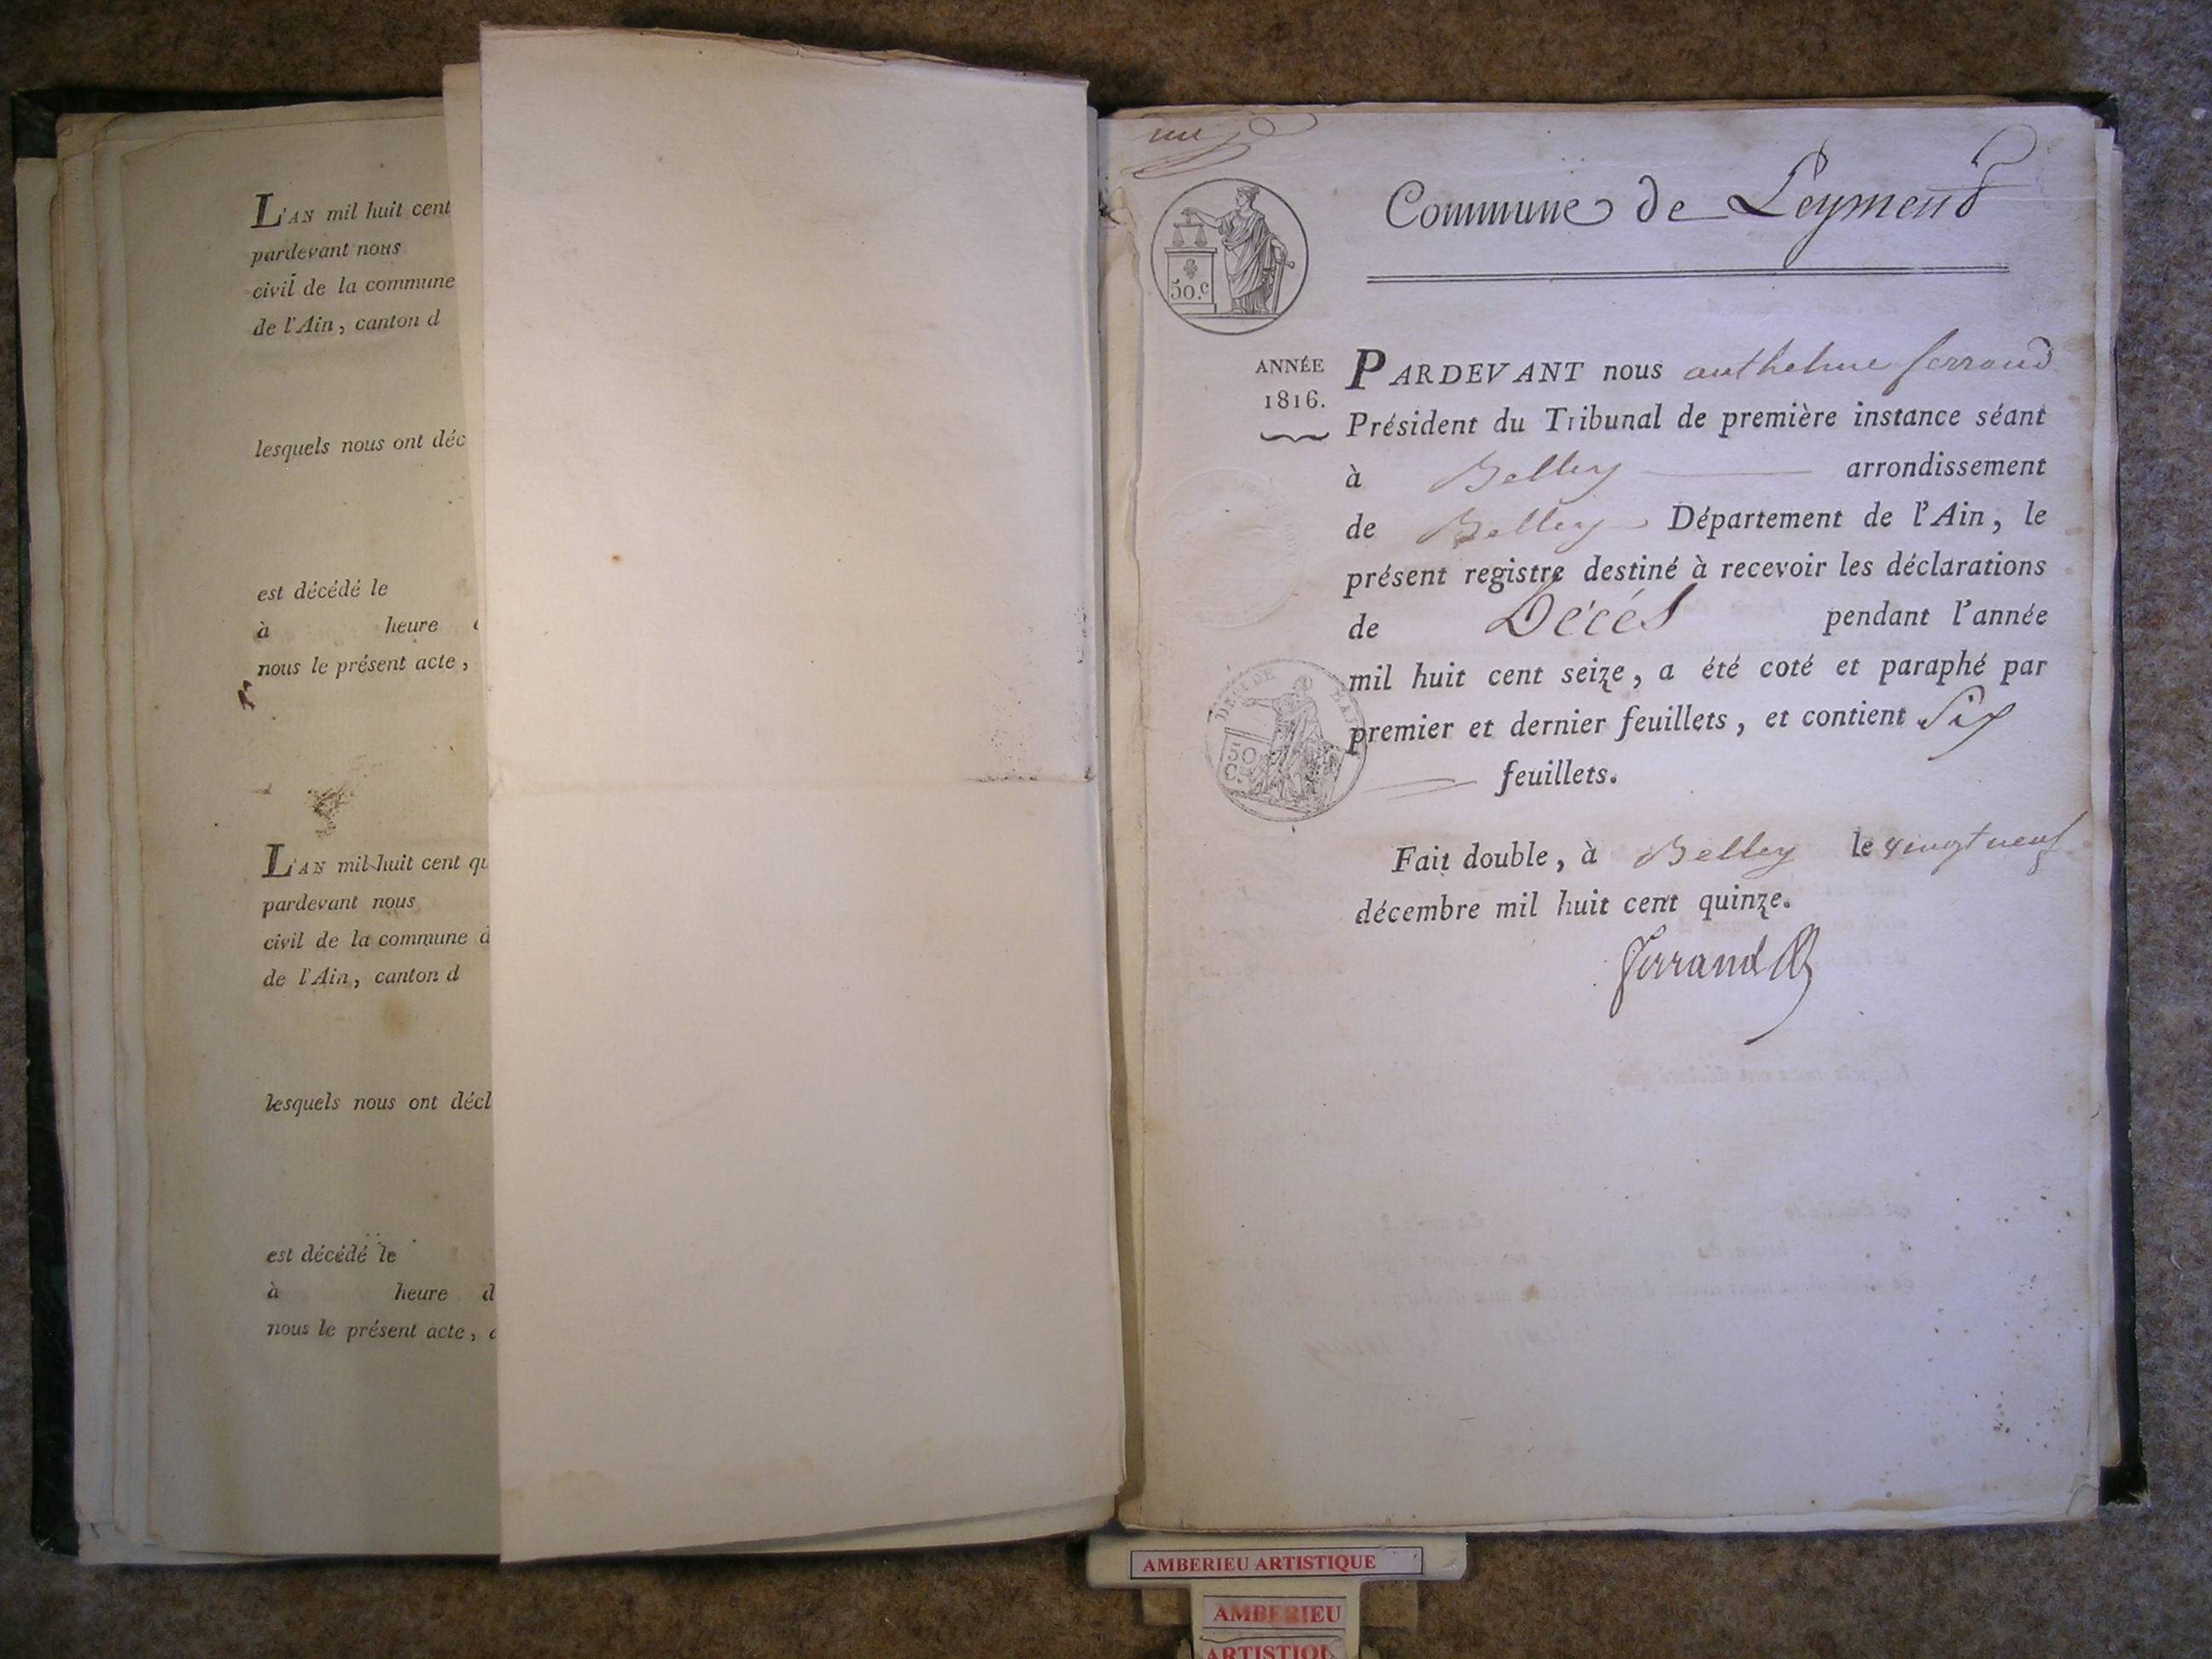 L'AN mil huit cent
pardevant nous
civil de la commune
de l'Ain, canton d
lesquels nous ont déc
est décédé le
à heure
nous le présent acte,
L'AN mil huit cent qu
pardevant nous
civil de la commune d
de l'Ain, canton d
lesquels nous ont décl
est décédé le
à heure d
nous le présent acte,
un
Commune de Leyment
50.c
ANNÉE
1816.
PARDEVANT nous anthelme ferrand
Président du Tribunal de première instance séant
à Belley arrondissement
de Belley Département de l'Ain, le
présent registre destiné à recevoir les déclarations
de Décés pendant l'année
mil huit cent seize, a été coté et paraphé par
premier et dernier feuillets, et contient Six
feuillets.
50
C.
Fait double, à Belley le vingt neuf
décembre mil huit cent quinze.
Ferrand
AMBERIEU ARTISTIQUE
AMBERIEU
ARTISTIQU